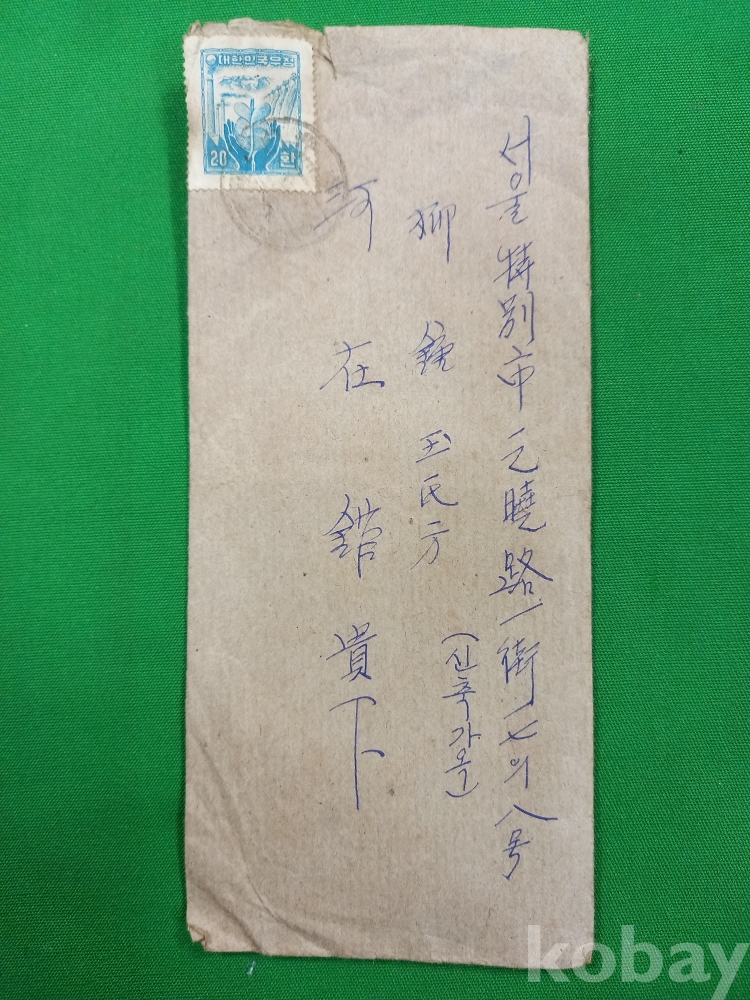 대한민국우정
20 환
서울特別市元曉路一街一七의八号
柳鍾玉氏方
(신축가옥)
河在館貴下
kobay